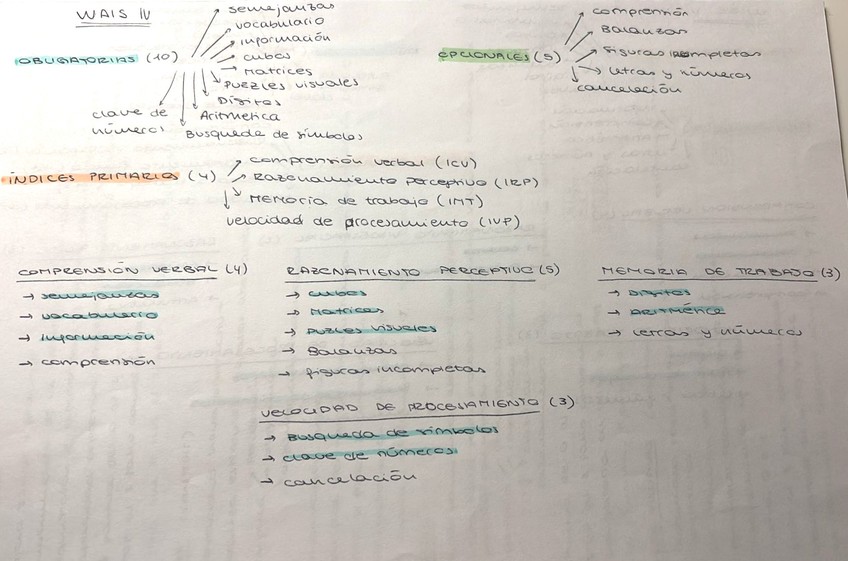 WAIS IV
OBLIGATORIAS (10)
semejanzas
vocabulario
información
cubos
Matrices
Puzzles visuales
Dígitos
Aritmética
Busqueda de símbolos
clave de
números
OPCIONALES (5)
comprensión
Balanzas
Figuras incompletas
Letras y números
cancelación
ÍNDICES PRIMARIOS (4)
comprensión verbal (ICV)
Razonamiento perceptivo (IRP)
Memoria de trabajo (IMT)
velocidad de procesamiento (IVP)
COMPRENSIÓN VERBAL (4)
→ semejanzas
→ vocabulario
→ Información
→ comprensión
RAZONAMIENTO PERCEPTIVO (5)
→ cubos
→ Matrices
→ Puzles visuales
→ Balanzas
→ figuras incompletas
MEMORIA DE TRABAJO (3)
→ Dígitos
→
→ Letras y números
VELOCIDAD DE PROCESAMIENTO (3)
→ Busqueda de símbolos
→ clave de números
→ cancelación